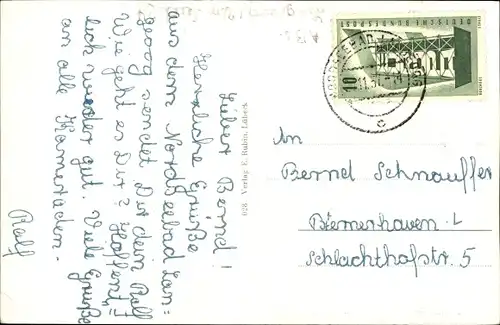 Lieber Bernd!
Herzliche Grüße
aus dem Nordseebad Lan=
geoog sendet Dir dein Ralf
Wie geht es Dir? Hoffent=
lich wieder gut. Viele Grüße
an alle Kameraden.
Ralf
828 Verlag K. Rubin, Lübeck
DEUTSCHE BUNDESPOST
10
An
Bernd Schnauffer
Bremerhaven-L
Schlachthofstr. 5